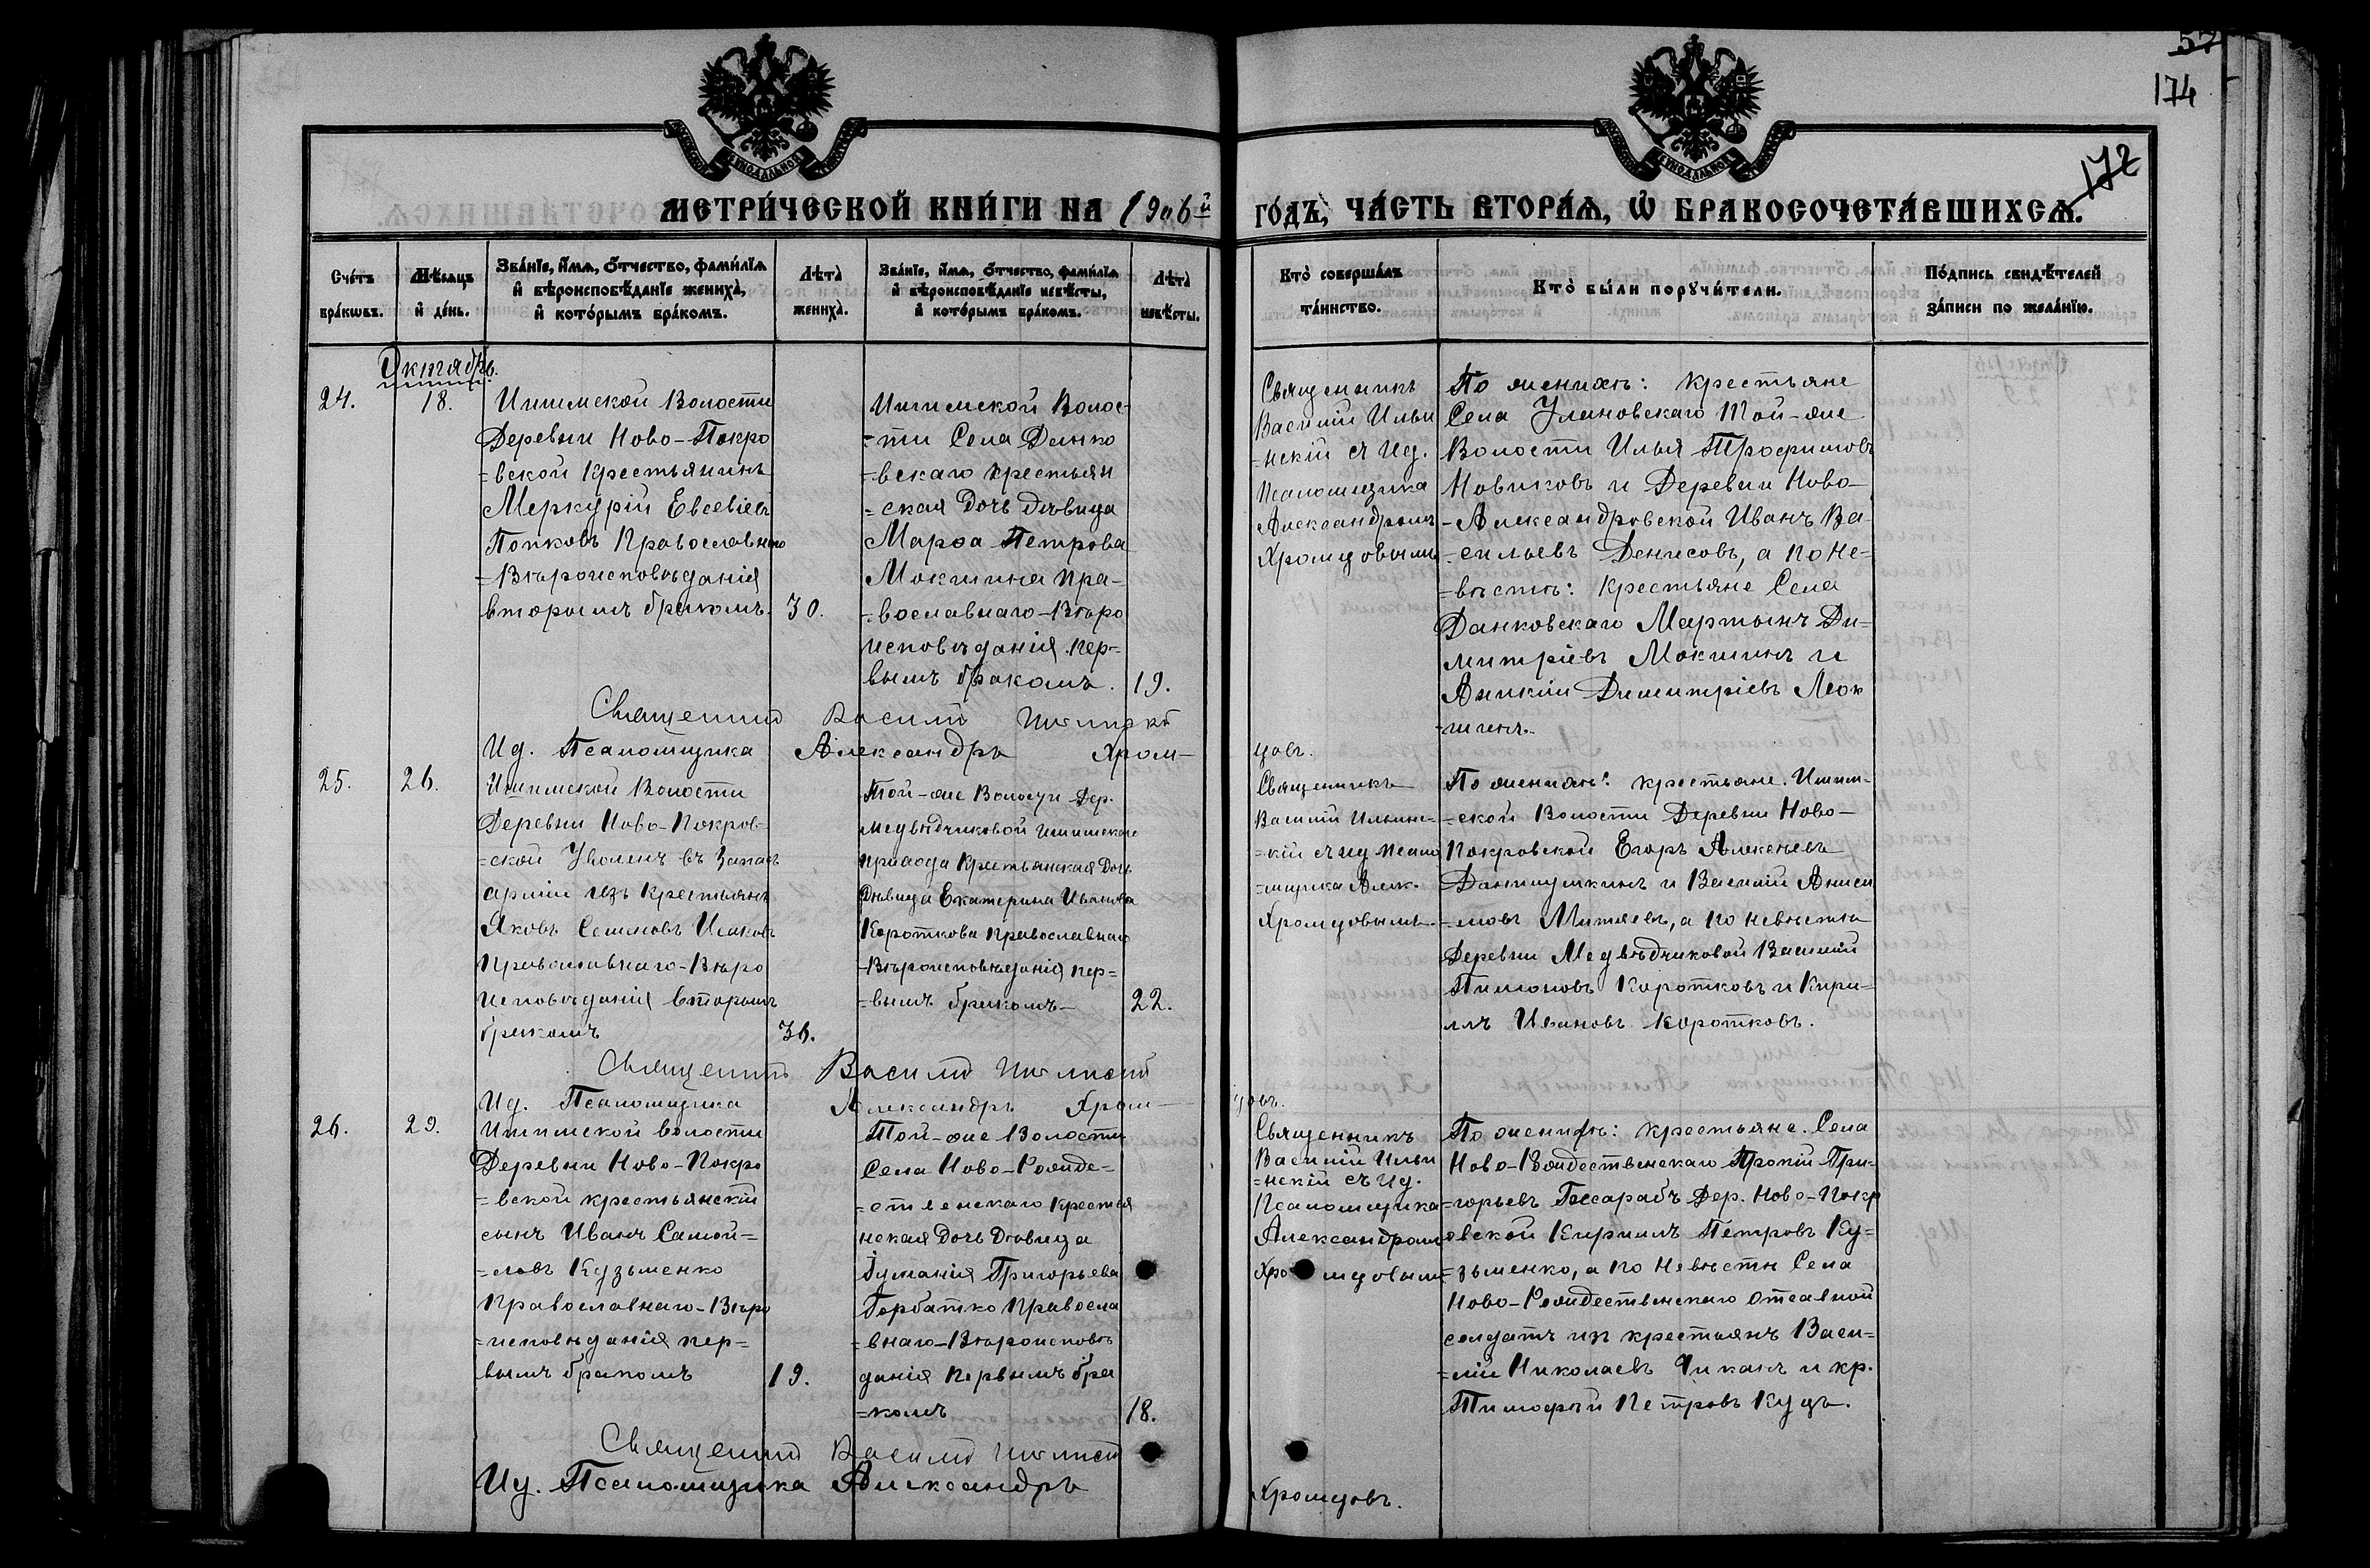 57
174
172
МЕТРИ́ЧЕСКОЙ КНИ́ГИ НА 1906й
ГО́ДЪ, ЧА́СТЬ ВТОРА́Ѧ, Ѡ҆ БРАКОСОЧЕТА́ВШИХСѦ.
Сче́тъ бра́кѡвъ.
Мѣ́сѧцъ и҆ де́нь.
Зва́нїе, и҆́мѧ, ѻ҆́тчество, фами́лїѧ
и҆ вѣроисповѣ́данїе жениха̀,
и҆ кото́рымъ бра́комъ.
Лѣта̀ жениха̀.
Зва́нїе, и҆́мѧ, ѻ҆́тчество, фами́лїѧ
и҆ вѣроисповѣ́данїе невѣ́сты,
и҆ кото́рымъ бра́комъ.
Лѣта̀ невѣ́сты.
Кто̀ соверша́лъ
та́инство.
Кто̀ бы́ли порꙋчи́тели.
По́дпись свидѣ́телей
за́писи по жела́нїю.
Октябрь.
24.
18.
Ишимской Волости
Деревни Ново-Покро
=вской Крестьянинъ
Меркурій Евсевіевъ
Попковъ Православнаго
=Вѣроисповѣданія
вторымъ бракомъ.
30.
Ишимской Волос-
=ти Села Данко
=вскаго крестьян
=ская Дочь дѣвица
Марѳа Петрова
Мокшина Пра-
=вославнаго-Вѣро
исповѣданія пер-
вымъ бракомъ.
19.
Священникъ
Василій Ильи
=нскій съ Ид.
Псаломщика
Александромъ
Хромцовымъ
По женихѣ: Крестьяне
Села Улановскаго Той-же
Волости Илья Трофимовъ
Новиковъ и Деревни Ново-
-Александровской Иванъ Ва-
=сильевъ Денисовъ, а по не-
=вѣстѣ: Крестьяне Села
Данковскаго Мартынъ Ди-
митріевъ Мокшинъ и
Димитріевъ Мок
=шинъ.
Священникъ Василій Ильинскій
Ид. Псаломщика Александръ Хром-
цовъ.
25.
26.
Ишимской Волости
Деревни Ново-Покров-
=ской Уволенъ въ Запасъ
арміи изъ Крестьянъ
Яковъ Семеновъ Исаковъ
Православнаго-Вѣро
исповѣданія вторымъ
бракомъ
36.
Той-же Волости Дер.
Медвѣдчиковой Ишимскаго
прихода Крестьянская Дочь
Дѣвица Екатерина Иванова
Короткова Православнаго
-Вѣроисповѣданія пер-
=вымъ бракомъ-
22.
Священникъ
Василій Ильинс-
=кій съ ид псало
=мщика Алек.
Хромцовымъ
По женихѣ: крестьяне. Ишим-
=ской Волости Деревни Ново-
Покровской Егоръ Алексѣевъ
и Василій Аниси
=мовъ Митяевъ, а по невѣстѣ
Деревни Медвѣдчиковой Василій
Пимоновъ Коротковъ и Кири-
ллъ Ивановъ Коротковъ.
Священникъ Василій Ильинскій
Ид. Псаломщика Александръ Хром-
цовъ.
26.
29.
Ишимской Волости
Деревни Ново-Покро
=вской крестьянскій
сынъ Иванъ Самой-
=ловъ Кузьменко
Православнаго-Вѣро
=исповѣданія пер-
вымъ бракомъ
19.
Той-же Волости
Села Ново-Рожде-
=ственскаго Крестья
нская Дочь Дѣвица
Григорьева
Горбатко Правосла
=внаго-Вѣроисповѣ
данія первымъ бра
=комъ
18.
Священникъ
Василій Ильи
=нскій съ Ид.
Псаломщика
Александромъ
Хромцовымъ
По женихѣ: крестьяне. Села
Прокій Гри-
=горьевъ Бессарабъ Дер. Ново-Покр
овской Кириллъ Петровъ Ку-
=зьменко, а по Невѣстѣ Села
Ново-Рождественскаго отставной
солдатъ изъ крестьянъ Васи-
=лій Николаевъ Чиканъ и кр.
Тимофѣй Петровъ Куцъ.
Священникъ Василій Ильинскій
Ид. Псаломщика Александръ
Хромцовъ.